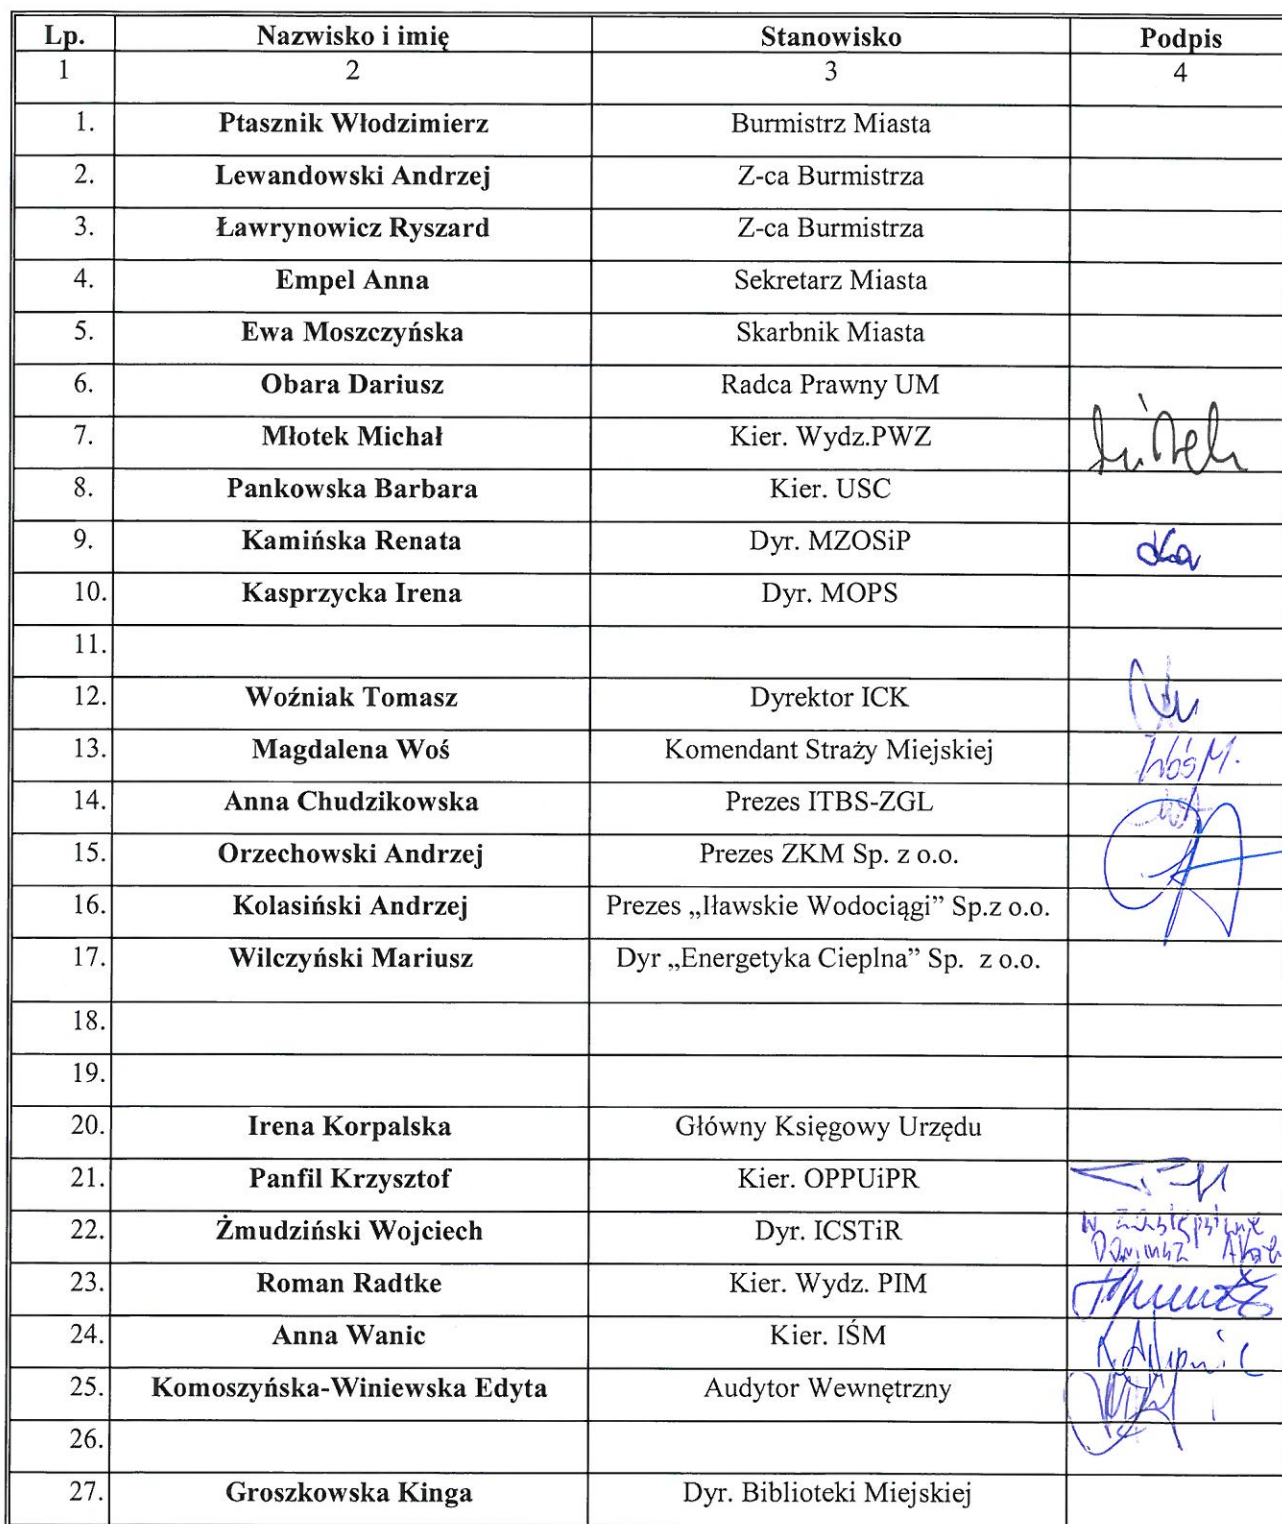 Lp. Nazwisko i imię Stanowisko Podpis
1 2 3 4
1. Ptasznik Włodzimierz Burmistrz Miasta
2. Lewandowski Andrzej Z-ca Burmistrza
3. Ławrynowicz Ryszard Z-ca Burmistrza
4. Empel Anna Sekretarz Miasta
5. Ewa Moszczyńska Skarbnik Miasta
6. Obara Dariusz Radca Prawny UM
7. Młotek Michał Kier. Wydz.PWZ
8. Pankowska Barbara Kier. USC
9. Kamińska Renata Dyr. MZOSiP
10. Kasprzycka Irena Dyr. MOPS
11.
12. Woźniak Tomasz Dyrektor ICK
13. Magdalena Woś Komendant Straży Miejskiej Woś M.
14. Anna Chudzikowska Prezes ITBS-ZGL
15. Orzechowski Andrzej Prezes ZKM Sp. z o.o.
16. Kolasiński Andrzej Prezes „Iławskie Wodociągi” Sp.z o.o.
17. Wilczyński Mariusz Dyr „Energetyka Cieplna” Sp. z o.o.
18.
19.
20. Irena Korpalska Główny Księgowy Urzędu
21. Panfil Krzysztof Kier. OPPUiPR
22. Żmudziński Wojciech Dyr. ICSTiR w zastępstwie
Dariusz
23. Roman Radtke Kier. Wydz. PIM
24. Anna Wanic Kier. IŚM
25. Komoszyńska-Winiewska Edyta Audytor Wewnętrzny
26.
27. Groszkowska Kinga Dyr. Biblioteki Miejskiej